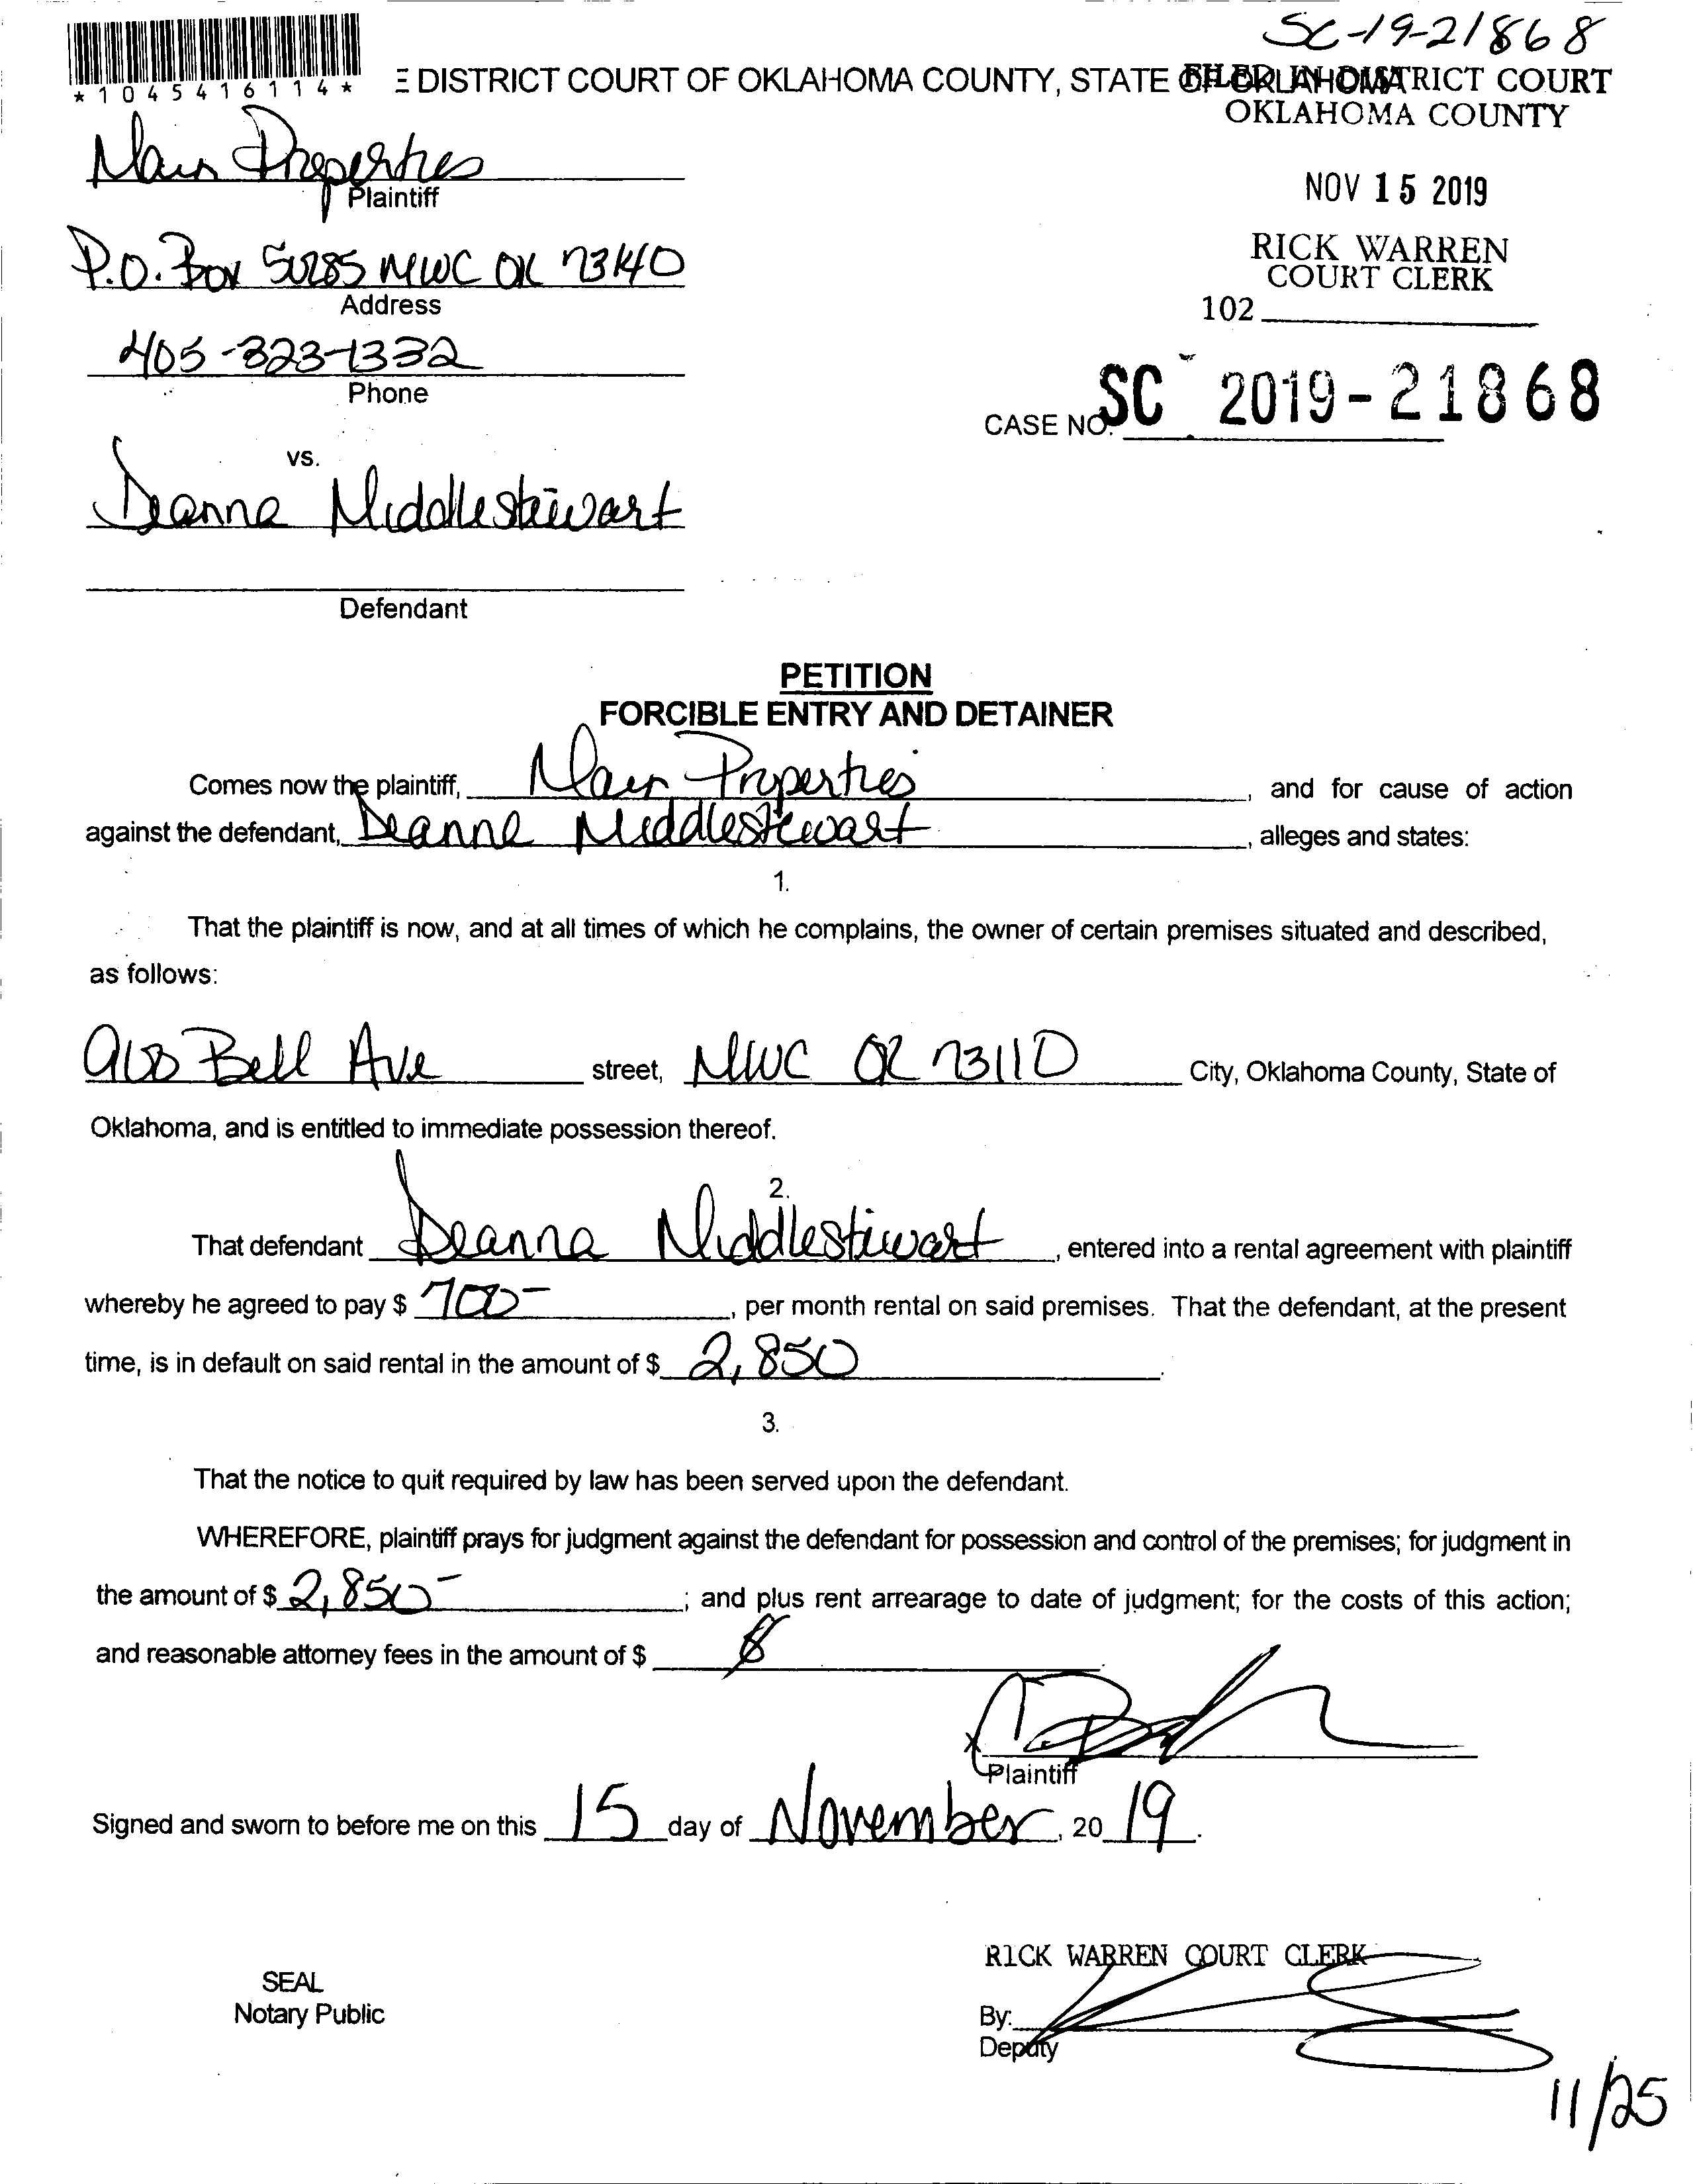 SC-19-21868
*1045416114*
E DISTRICT COURT OF OKLAHOMA COUNTY, STATE OF OKLAHOMA
FILED IN DISTRICT COURT
OKLAHOMA COUNTY
Properties
Plaintiff
NOV 15 2019
P.O. Box MWC OK 73140
Address
RICK WARREN
COURT CLERK
102
405-323-1332
Phone
CASE NO. SC 2019-21868
vs.
Deanna Middlestewart
Defendant
PETITION
FORCIBLE ENTRY AND DETAINER
Comes now the plaintiff, Properties, and for cause of action
against the defendant, Deanna Middlestewart, alleges and states:
1.
That the plaintiff is now, and at all times of which he complains, the owner of certain premises situated and described,
as follows:
Bell Ave street, MWC OK 73110 City, Oklahoma County, State of
Oklahoma, and is entitled to immediate possession thereof.
2.
That defendant Deanna Middlestewart, entered into a rental agreement with plaintiff
whereby he agreed to pay $ 700-, per month rental on said premises. That the defendant, at the present
time, is in default on said rental in the amount of $ 2,850.
3.
That the notice to quit required by law has been served upon the defendant.
WHEREFORE, plaintiff prays for judgment against the defendant for possession and control of the premises; for judgment in
the amount of $ 2,850-; and plus rent arrearage to date of judgment; for the costs of this action;
and reasonable attorney fees in the amount of $
x
Plaintiff
Signed and sworn to before me on this 15 day of November, 20 19.
RICK WARREN COURT CLERK
SEAL
Notary Public
By:
Deputy
11/25